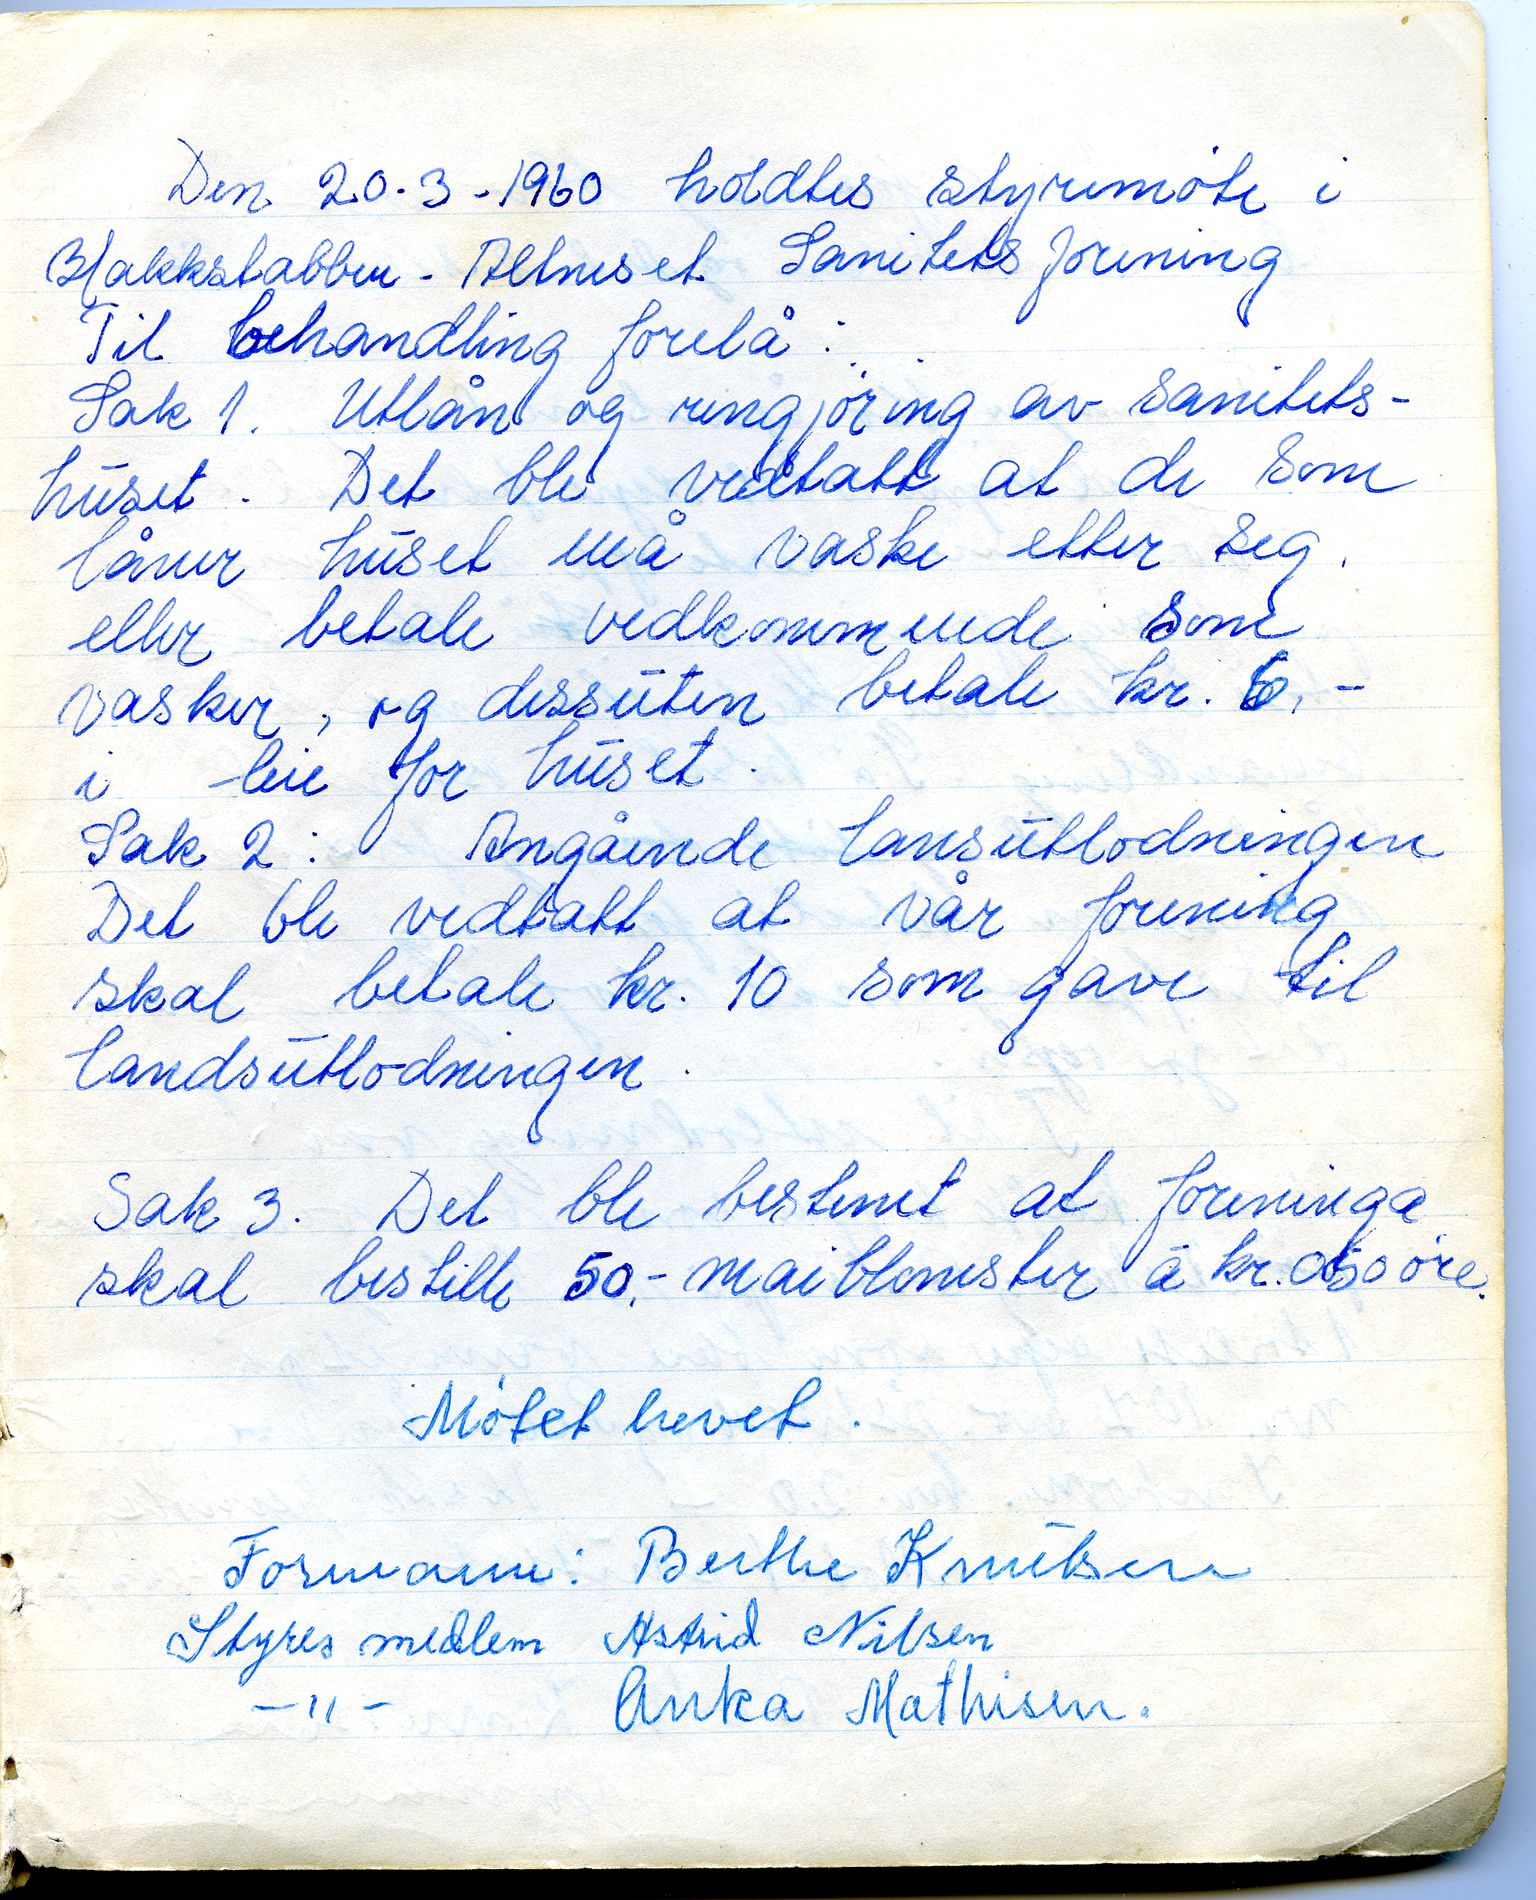 Den 20-3-1960 holdtes styremöte i
Blakkstabber - Altneset Sanitetsforening
Til behandling forelå:
Sak 1. Utlån og rengjöring av sanitets-
huset. Det ble vedtatt at de som
låner huset må vaske etter seg.
eller betale vedkommende som
vasker, og dessuten betale kr. 6,-
i leie for huset.
Sak 2: Angående lansutlodningen
Det ble vedtatt at vår forening
skal betale kr. 10 som gave til
landsutlodningen.
Sak 3. Det ble bestemt at foreninga
skal bestille 50,- maiblomster á kr. 050 öre.
Mötet hevet.
Formann: Berthe Knutsen
Styres medlem Astrid Nilsen
- " - Anka Mathisen.